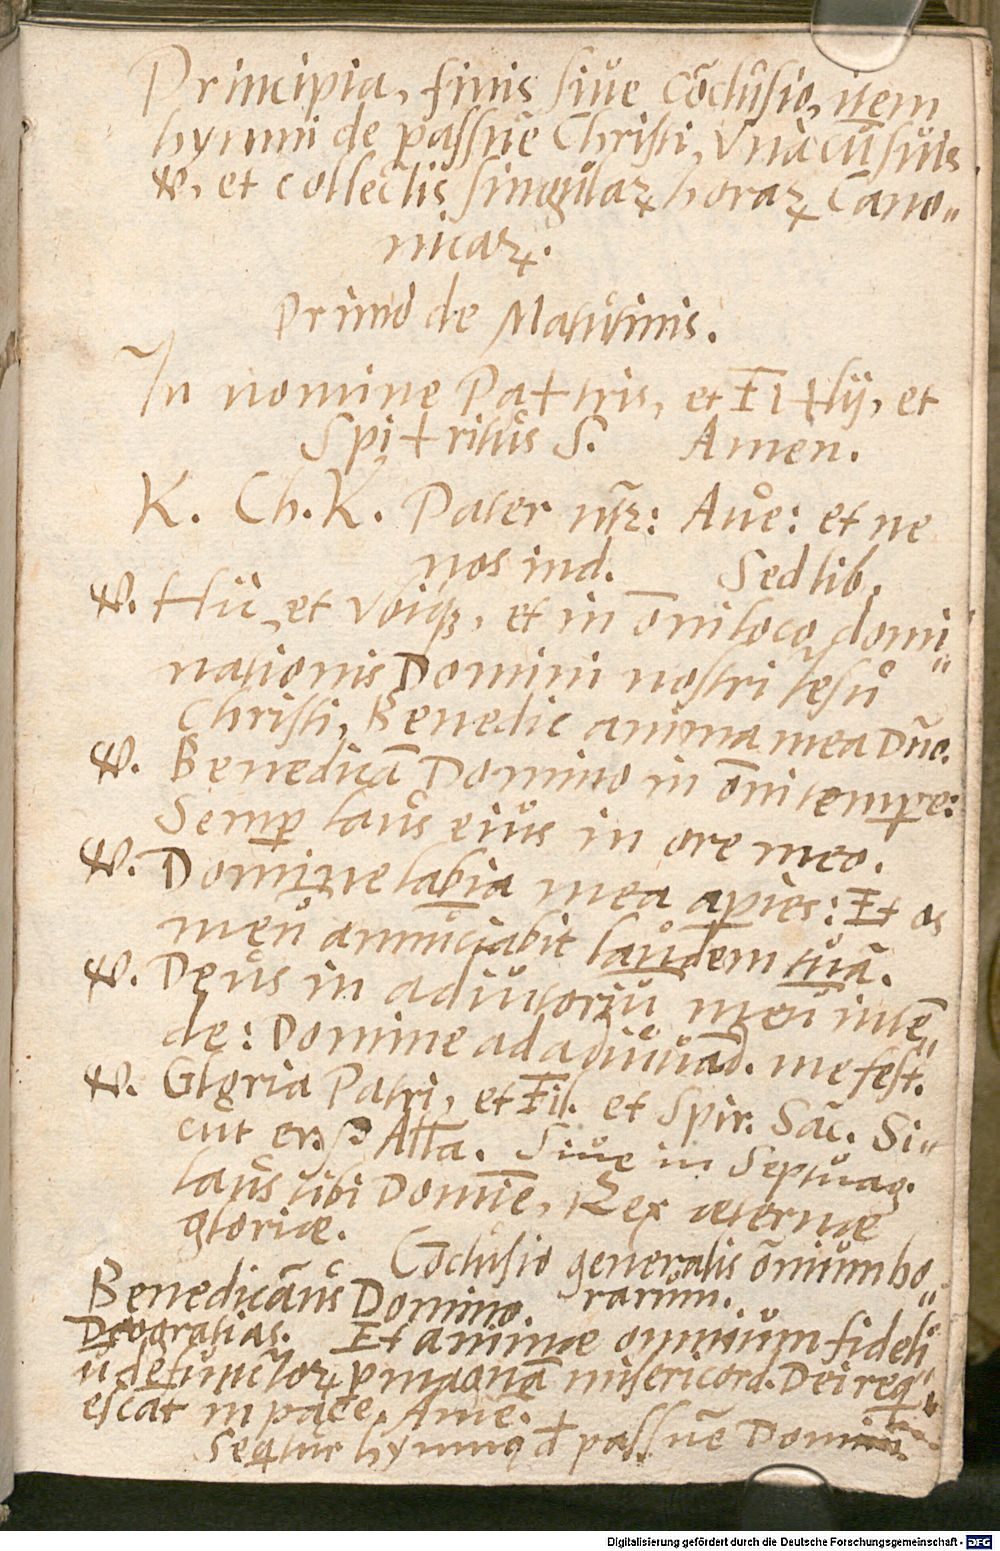 Principia, finis siue cõclusio, item
hymni de passiõe Christi, vnàcũ suis
℣. et collectis singularꝝ horarꝝ Cano„
nicarꝝ.
Primò de Matutinis.
In nomine Pa+tris, et Fi+lij, et
Spi+ritus S. Amen.
K. Ch. K. Pater nr̃: Aue: et ne
nos ind. Sed lib.
℣. Hic et vbiqꝫ, et in õni loco domi„
nationis Domini nostri Iesu
Christi, Benedic anima mea Dño.
℣. Benedicã Domino in õni tempore:
Semꝑ laus eius in ore meo.
℣. Domine labia mea aperies: Et os
meũ annũciabit laudem tuã.
℣. Deus in adiutoriũ meũ intẽ„
de: Domine ad adiuuãd. me fest.
℣. Gloria Patri, et Fil. et Spir. Sãc. Si„
cut er. Alla. Siue in Septuag.
laus tibi Domĩe, Rex æternæ
gloriæ.
Cõclusio generalis õmium ho„
rarum.
Benedicãus Domino.
Deo gratias. Et animæ omnium fideli„
ũ defunctorꝝ ꝑ magnã misericord. Dei req„
escãt in pace. Amẽ.
Seqtur hymnꝰ đ passiõe Domini.
Digitalisierung gefördert durch die Deutsche Forschungsgemeinschaft - DFG